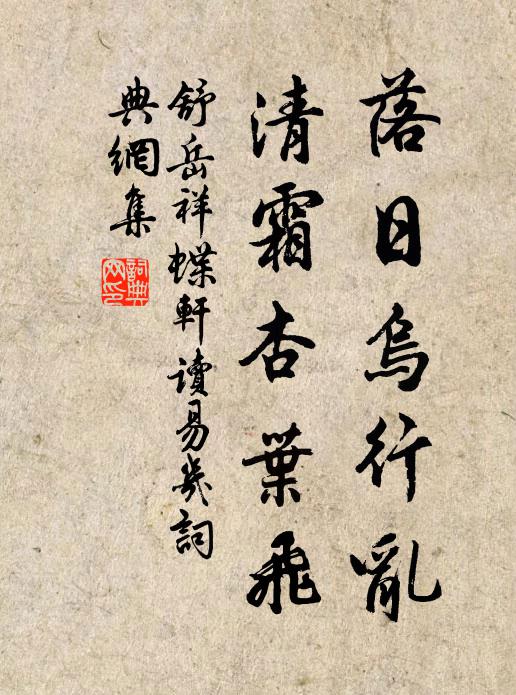 落日烏行亂
清霜杏葉飛
舒岳祥蝶軒讀易發詞
典網集
詞典
网印